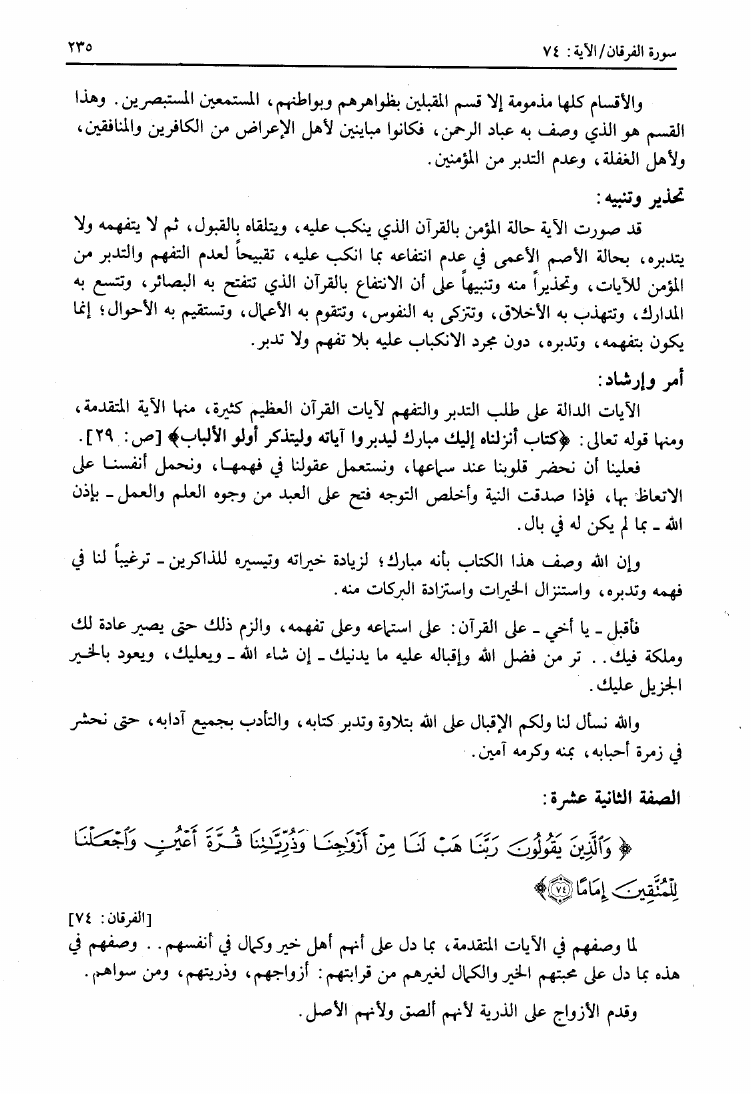 سورة الفرقان/الآية: ٧٤
٢٣٥
والأقسام كلها مذمومة إلا قسم المقبلين بظواهرهم وبواطنهم، المستمعين المستبصرين. وهذا
القسم هو الذي وصف به عباد الرحمن، فكانوا مباينين لأهل الإعراض من الكافرين والمنافقين،
ولأهل الغفلة، وعدم التدبر من المؤمنين.
تحذير وتنبيه:
قد صورت الآية حالة المؤمن بالقرآن الذي ينكب عليه، ويتلقاه بالقبول، ثم لا يتفهمه ولا
يتدبره، بحالة الأصم الأعمى في عدم انتفاعه بما انكب عليه، تقبيحاً لعدم التفهم والتدبر من
المؤمن للآيات، وتحذيراً منه وتنبيهاً على أن الانتفاع بالقرآن الذي تتفتح به البصائر، وتتسع به
المدارك، وتتهذب به الأخلاق، وتتزكى به النفوس، وتتقوم به الأعمال، وتستقيم به الأحوال؛ إنما
يكون بتفهمه، وتدبره، دون مجرد الانكباب عليه بلا تفهم ولا تدبر.
أمر وإرشاد:
الآيات الدالة على طلب التدبر والتفهم لآيات القرآن العظيم كثيرة، منها الآية المتقدمة،
ومنها قوله تعالى: ﴿كتاب أنزلناه إليك مبارك ليدبروا آياته وليتذكر أولو الألباب﴾ [ص: ٢٩].
فعلينا أن نحضر قلوبنا عند سماعها، ونستعمل عقولنا في فهمها، ونحمل أنفسنا على
الاتعاظ بها، فإذا صدقت النية وأخلص التوجه فتح على العبد من وجوه العلم والعمل ـ بإذن
الله ـ بما لم يكن له في بال.
وإن الله وصف هذا الكتاب بأنه مبارك؛ لزيادة خيراته وتيسيره للذاكرين ـ ترغيباً لنا في
فهمه وتدبره، واستنزال الخيرات واستزادة البركات منه.
فأقبل ـ يا أخي ـ على القرآن: على استماعه وعلى تفهمه، والزم ذلك حتى يصير عادة لك
وملكة فيك.. تر من فضل الله وإقباله عليه ما يدنيك ـ إن شاء الله ـ ويعليك، ويعود بالخير
الجزيل عليك.
والله نسأل لنا ولكم الإقبال على الله بتلاوة وتدبر كتابه، والتأدب بجميع آدابه، حتى نحشر
في زمرة أحبابه، بمنه وكرمه آمين.
الصفة الثانية عشرة:
﴿ وَٱلَّذِينَ يَقُولُونَ رَبَّنَا هَبْ لَنَا مِنْ أَزْوَٰجِنَا وَذُرِّيَّٰتِنَا قُرَّةَ أَعْيُنٍ وَٱجْعَلْنَا
لِلْمُتَّقِينَ إِمَامًا ٧٤ ﴾
[الفرقان: ٧٤]
لما وصفهم في الآيات المتقدمة، بما دل على أنهم أهل خير وكمال في أنفسهم.. وصفهم في
هذه بما دل على محبتهم الخير والكمال لغيرهم من قرابتهم: أزواجهم، وذريتهم، ومن سواهم.
وقدم الأزواج على الذرية لأنهم ألصق ولأنهم الأصل.